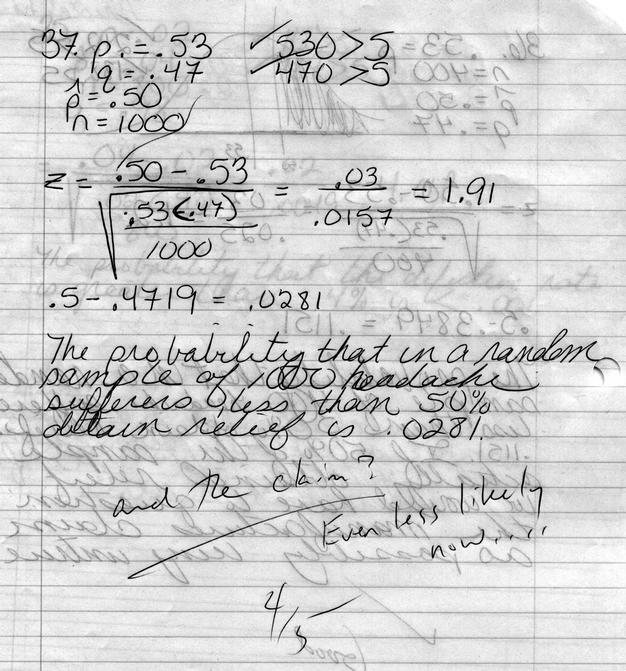 37. p = .53 ✓ 530 > 5
q = .47 ✓ 470 > 5
p̂ = .50
n = 1000
z = .50 - .53 / √(.53(.47) / 1000) = .03 / .0157 = 1.91
.5 - .4719 = .0281
The probability that in a random
sample of 1000 headache
sufferers less than 50%
obtain relief is .0281.
and the claim?
Even less likely
now.....
4/5